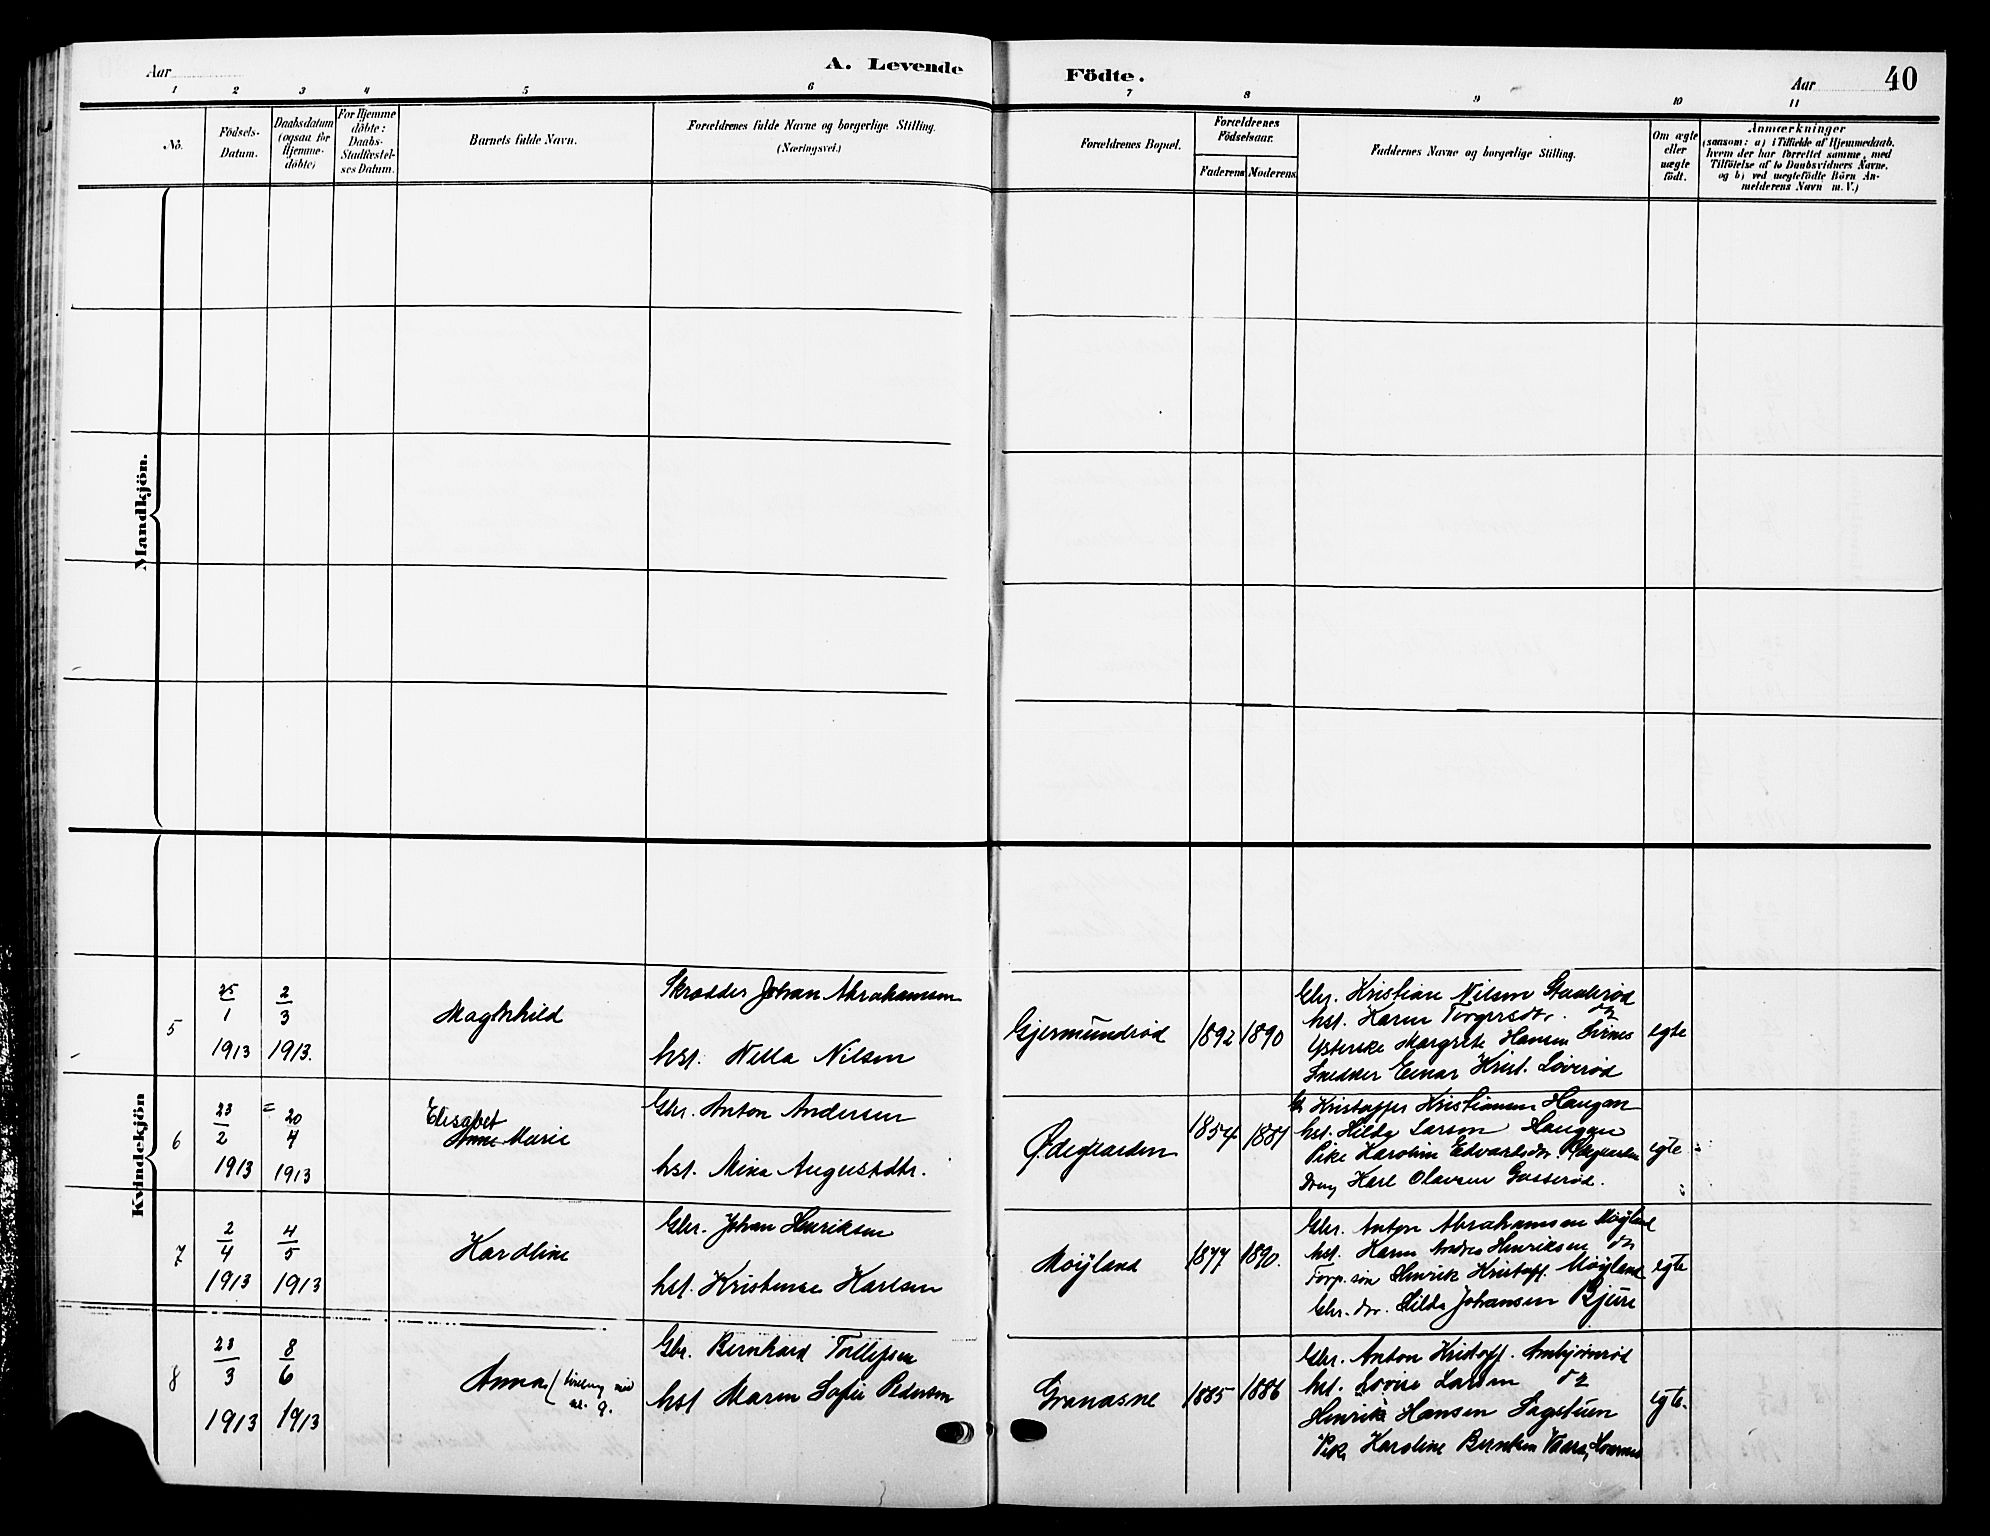 Aar
A. Levende
Födte.
Aar
40
1 2 3 4 5 6 7 8 9 10 11
No.
Födsels-
Datum.
Daabsdatum
(ogsaa for
Hjemme-
döbte)
For Hjemme
döbte:
Daabs-
Stadfæstel-
ses Datum.
Barnets fulde Navn.
Forældrenes fulde Navne og borgerlige Stilling.
(Næringsvei.)
Forældrenes Bopæl.
Forældrenes
Födselsaar.
Faderens Moderens
Faddernes Navne og borgerlige Stilling.
Om ægte
eller
uægte
födt.
Anmærkninger
(saasom: a) i Tilfælde af Hjemmedaab.
hvem der har forrettet samme, med
Tilföielse af to Daabsvidners Navne.
og b) ved uægtefödte Börn An-
melderens Navn m. V.)
Mandkjön.
Kvindekjön
5
25/1
1913
2/3
1913.
Maghhild
Skrædder Johan Abrahamsen
hst. Nella Nilsen
Gjermundrød
1892 1890
Gbr. Kristian Nilsen Graaterød
hst. Karen Torgersdtr. do
Margrete Hansen
Snedker Einar Krist. Løverød
egte
6
23/2
1913
20/4
1913
Elisabet
Anne Marie
Gbr. Anton Andersen
hst. Mina Augustadtr.
Ødegaarden
1854 1881
Kristoffer Kristiansen Haugan
hst. Hilda Larsen Haugan
Pike Karoline Edvardsdtr. Ødegaarden
Dreng Karl Olavsen Gasserød.
egte
7
2/4
1913
4/5
1913
Karoline
Gbr. Johan Henriksen
hst. Kristense Karlsen
Møiland
1877 1890.
Gbr. Anton Abrahamsen Møiland
hst. Karen Andrea Henriksen do
Torp. søn Henrik Kristoff. Møiland
Gbr. dtr. Hilda Johansen Bjure
egte
8
23/3
1913
8/6
1913
Anna
Gbr. Bernhard Tollefsen
hst Maren Sofie Pedersen
Granaasne
1885 1886
Gbr. Anton Kristoff. Ambjørnrød
hst. Lovise Larsen do
Henrik Hansen Sagstuen
Pike Karoline Berntsen
egte.